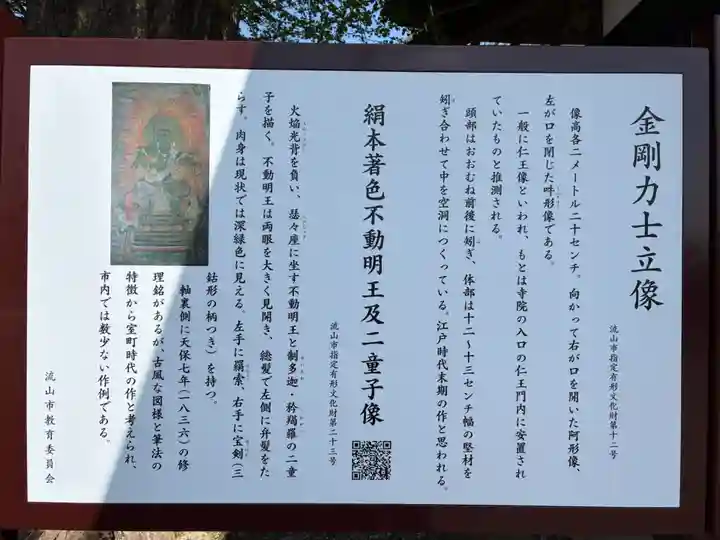 金剛力士立像
流山市指定有形文化財第十二号
像高各二メートル二十センチ。向かって右が口を開いた阿形像、
左が口を閉じた吽形像である。
一般に仁王像といわれ、もとは寺院の入口の仁王門内に安置され
ていたものと推測される。
頭部はおおむね前後に矧ぎ、体部は十二〜十三センチ幅の竪材を
矧ぎ合わせて中を空洞につくっている。江戸時代末期の作と思われる。
絹本著色不動明王及二童子像
流山市指定有形文化財第二十三号
火焔光背を負い、瑟々座に坐す不動明王と制多迦・矜羯羅の二童
子を描く。不動明王は両眼を大きく見開き、総髪で左側に弁髪をた
らす。肉身は現状では深緑色に見える。左手に羂索、右手に宝剣（三
鈷形の柄つき）を持つ。
軸裏側に天保七年（一八三六）の修
理銘があるが、古風な図様と筆法の
特徴から室町時代の作と考えられ、
市内では数少ない作例である。
流山市教育委員会